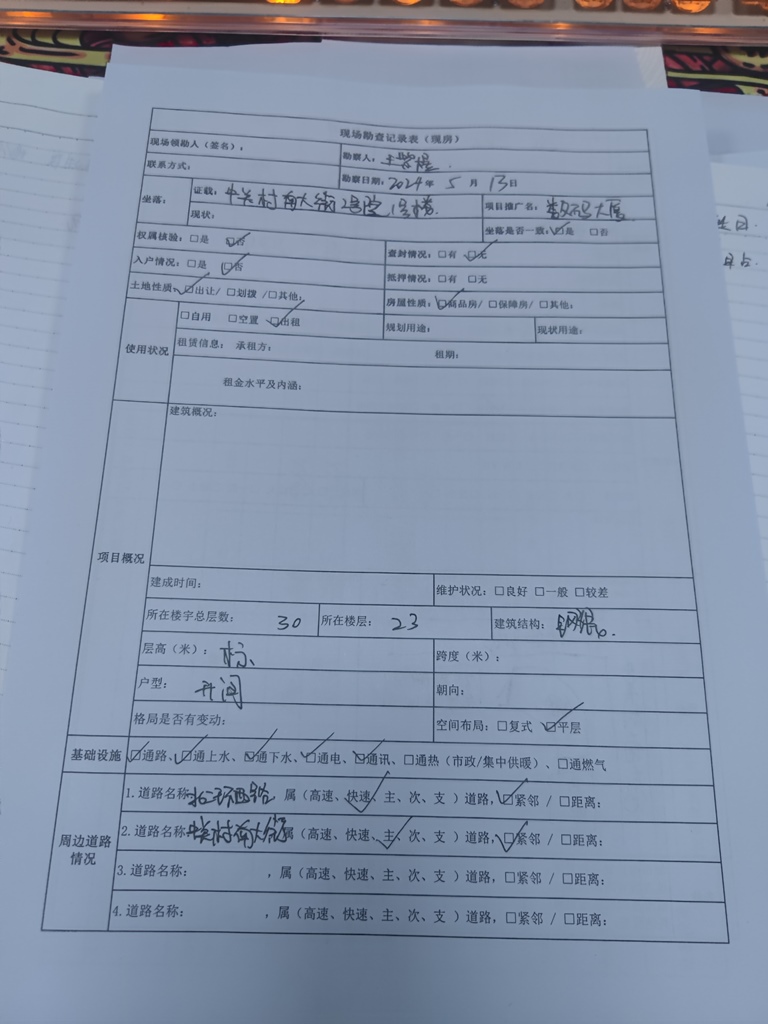 现场勘查记录表（现房）
现场领勘人（签名）： 勘察人：
联系方式： 勘察日期：2024年 5 月 13日
坐落： 证载：中关村南大街2号院1号楼 项目推广名：数码大厦
现状： 坐落是否一致：☑是 □否
权属核验：□是 ☑否 查封情况：□有 ☑无
入户情况：□是 ☑否 抵押情况：□有 □无
土地性质：☑出让/ □划拨 /□其他： 房屋性质：☑商品房/ □保障房/ □其他：
使用状况 □自用 □空置 ☑出租 规划用途： 现状用途：
租赁信息： 承租方： 租期：
租金水平及内涵：
项目概况 建筑概况：
建成时间： 维护状况：□良好 □一般 □较差
所在楼宇总层数： 30 所在楼层： 23 建筑结构：钢混
层高（米）：标 跨度（米）：
户型： 开间 朝向：
格局是否有变动： 空间布局：□复式 ☑平层
基础设施 ☑通路、☑通上水、☑通下水、☑通电、☑通讯、□通热（市政/集中供暖）、□通燃气
周边道路情况 1.道路名称：北三环西路 属（高速、快速、主、次、支 ）道路，☑紧邻 / □距离：
2.道路名称：中关村南大街 属（高速、快速、主、次、支 ）道路，☑紧邻 / □距离：
3.道路名称： ，属（高速、快速、主、次、支 ）道路，□紧邻 / □距离：
4.道路名称： ，属（高速、快速、主、次、支 ）道路，□紧邻 / □距离：